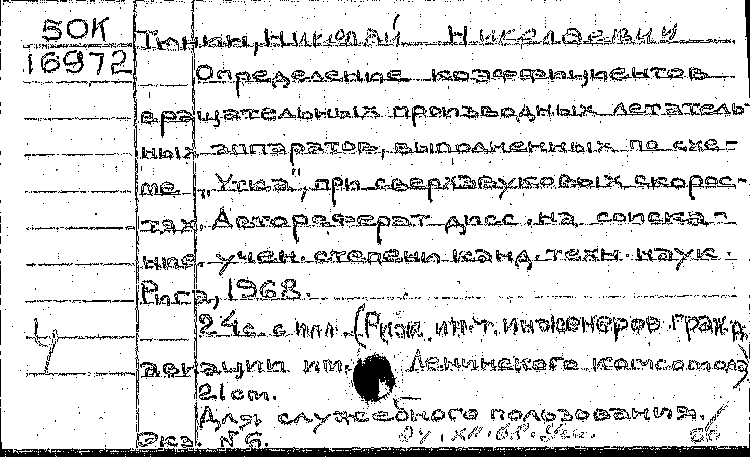 50К
16972
Тюнин, Николай Николаевич
Определение коэффициентов
вращательных производных летатель-
ных аппаратов, выполненных по схе-
ме „Утка", при сверхзвуковых скорос-
тях. Автореферат дисс. на соиска-
ние. учен. степени канд. техн. наук.
Рига, 1968.
24с. с илл. (Рижск. ин-т. инженеров гражд.
авиации им. Ленинского комсомола)
21 cm.
Для служебного пользования.
Экз. № 6.